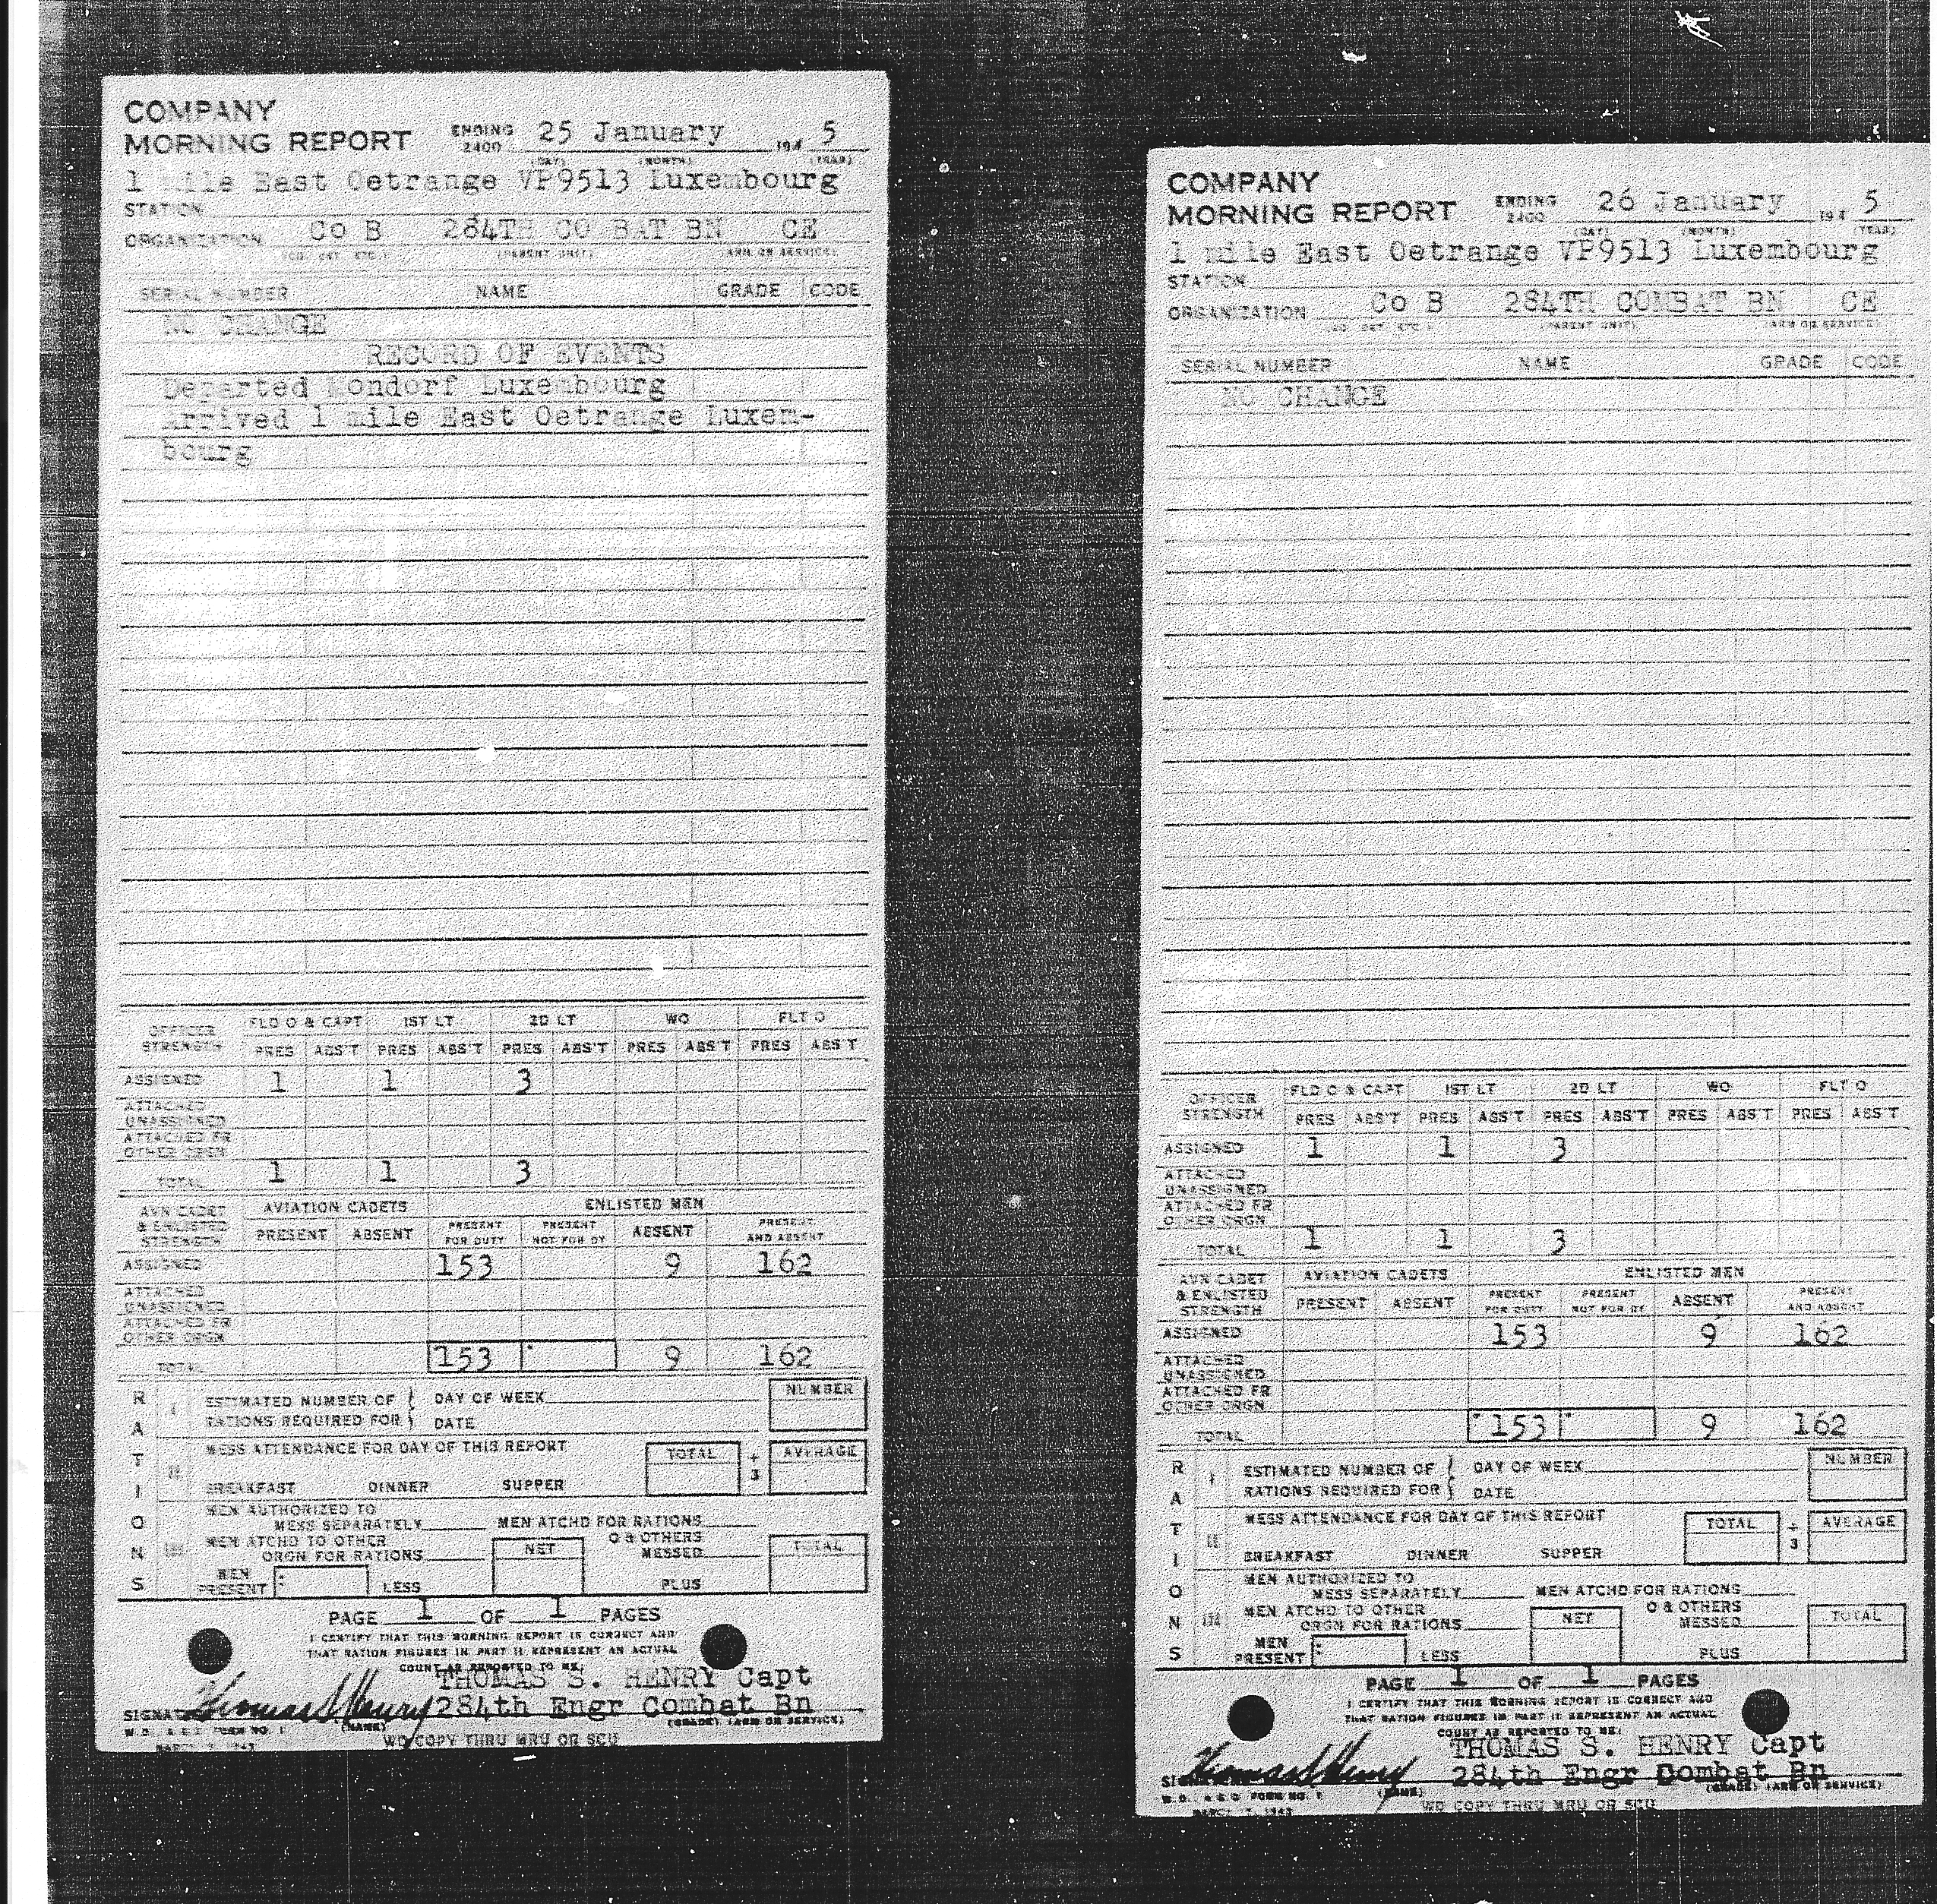 COMPANY
MORNING REPORT ENDING 2400 25 January 194 5
(DAY) (MONTH) (YEAR)
1 mile East Oetrange VP9513 Luxembourg
STATION
ORGANIZATION Co B 284TH COMBAT BN CE
(CO. DET. ETC.) (PARENT UNIT) (ARM OR SERVICE)
SERIAL NUMBER NAME GRADE CODE
NO CHANGE
RECORD OF EVENTS
Departed Mondorf Luxembourg
Arrived 1 mile East Oetrange Luxem-
bourg
OFFICER STRENGTH FLD O & CAPT 1ST LT 2D LT WO FLT O
PRES ABS'T PRES ABS'T PRES ABS'T PRES ABS'T PRES ABS'T
ASSIGNED 1 1 3
ATTACHED UNASSIGNED
ATTACHED FR OTHER ORGN
TOTAL 1 1 3
AVN CADET & ENLISTED STRENGTH AVIATION CADETS ENLISTED MEN
PRESENT ABSENT PRESENT FOR DUTY PRESENT NOT FOR DY ABSENT PRESENT AND ABSENT
ASSIGNED 153 9 162
ATTACHED UNASSIGNED
ATTACHED FR OTHER ORGN
TOTAL 153 9 162
RATIONS
I ESTIMATED NUMBER OF RATIONS REQUIRED FOR DAY OF WEEK DATE NUMBER
II MESS ATTENDANCE FOR DAY OF THIS REPORT TOTAL ÷ 3 AVERAGE
BREAKFAST DINNER SUPPER
III MEN AUTHORIZED TO MESS SEPARATELY MEN ATCHD FOR RATIONS
MEN ATCHD TO OTHER ORGN FOR RATIONS NET O & OTHERS MESSED TOTAL
MEN PRESENT LESS PLUS
PAGE 1 OF 1 PAGES
I CERTIFY THAT THIS MORNING REPORT IS CORRECT AND
THAT RATION FIGURES IN PART II REPRESENT AN ACTUAL
COUNT AS REPORTED TO ME:
THOMAS S. HENRY Capt
SIGNAT Thomas S Henry 284th Engr Combat Bn
(NAME) (GRADE) (ARM OR SERVICE)
W.D., A.G.O. FORM NO. 1
MARCH 7, 1943
WD COPY THRU MRU OR SCU
COMPANY
MORNING REPORT ENDING 2400 26 January 194 5
(DAY) (MONTH) (YEAR)
1 mile East Oetrange VP9513 Luxembourg
STATION
ORGANIZATION Co B 284TH COMBAT BN CE
(CO. DET. ETC.) (PARENT UNIT) (ARM OR SERVICE)
SERIAL NUMBER NAME GRADE CODE
NO CHANGE
OFFICER STRENGTH FLD O & CAPT 1ST LT 2D LT WO FLT O
PRES ABS'T PRES ABS'T PRES ABS'T PRES ABS'T PRES ABS'T
ASSIGNED 1 1 3
ATTACHED UNASSIGNED
ATTACHED FR OTHER ORGN
TOTAL 1 1 3
AVN CADET & ENLISTED STRENGTH AVIATION CADETS ENLISTED MEN
PRESENT ABSENT PRESENT FOR DUTY PRESENT NOT FOR DY ABSENT PRESENT AND ABSENT
ASSIGNED 153 9 162
ATTACHED UNASSIGNED
ATTACHED FR OTHER ORGN
TOTAL 153 9 162
RATIONS
I ESTIMATED NUMBER OF RATIONS REQUIRED FOR DAY OF WEEK DATE NUMBER
II MESS ATTENDANCE FOR DAY OF THIS REPORT TOTAL ÷ 3 AVERAGE
BREAKFAST DINNER SUPPER
III MEN AUTHORIZED TO MESS SEPARATELY MEN ATCHD FOR RATIONS
MEN ATCHD TO OTHER ORGN FOR RATIONS NET O & OTHERS MESSED TOTAL
MEN PRESENT LESS PLUS
PAGE 1 OF 1 PAGES
I CERTIFY THAT THIS MORNING REPORT IS CORRECT AND
THAT RATION FIGURES IN PART II REPRESENT AN ACTUAL
COUNT AS REPORTED TO ME:
THOMAS S. HENRY Capt
SI Thomas S Henry 284th Engr Combat Bn
(NAME) (GRADE) (ARM OR SERVICE)
W.D., A.G.O. FORM NO. 1
MARCH 7, 1943
WD COPY THRU MRU OR SCU